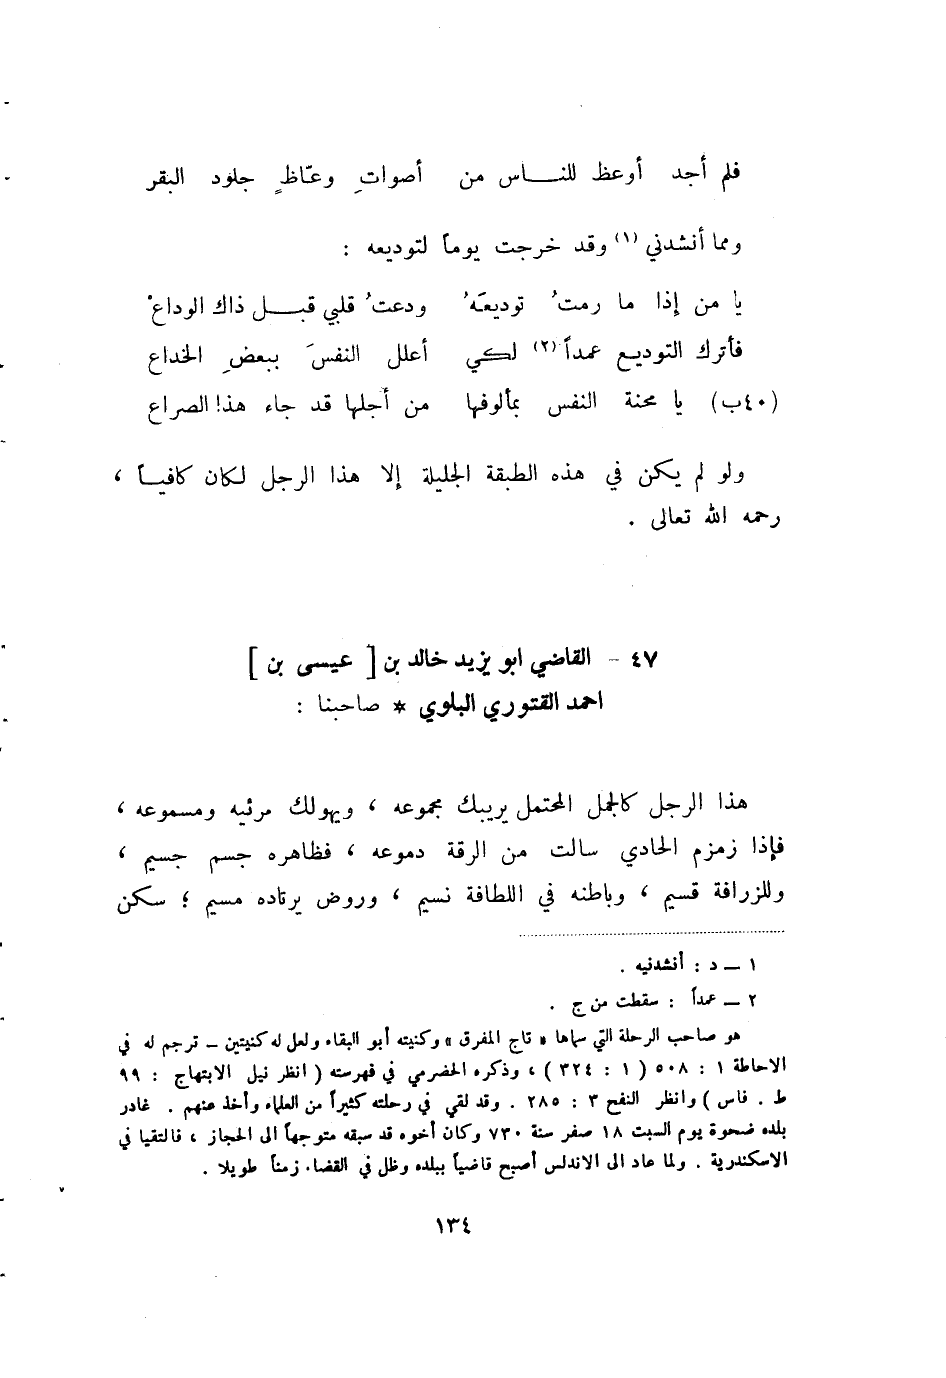 فلم أجد أوعظ للنـــاس من أصواتِ وعّاظٍ جلود البقر
ومما أنشدني (١) وقد خرجت يوماً لتوديعه :
يا من إذا ما رمتُ توديعَهُ ودعتُ قلبي قبـــل ذاك الوداعْ
فأترك التوديع عمداً (٢) لكي أعلل النفسَ ببعضِ الخداع
(٤٠ب) يا محنة النفس بمألوفها من أجلها قد جاء هذا الصراع
ولو لم يكن في هذه الطبقة الجليلة إلا هذا الرجل لكان كافيـاً ،
رحمه الله تعالى .
٤٧ - القاضي ابو يزيد خالد بن [ عيسى بن ]
احمد القتوري البلوي * صاحبنا :
هذا الرجل كالجمل المحتمل يريبك مجموعه ، ويهولك مرئيه ومسموعه ،
فإذا زمزم الحادي سالت من الرقة دموعه ، فظاهره جسم جسيم ،
وللزرافة قسيم ، وباطنه في اللطافة نسيم ، وروض يرتاده مسيم ؛ سكن
١ – د : أنشدنيه .
٢ – عمداً : سقطت من ج .
هو صاحب الرحلة التي سماها « تاج المفرق » وكنيته أبو البقاء ولعل له كنيتين – ترجم له في
الاحاطة ١ : ٥٠٨ ( ١ : ٣٢٤ ) ، وذكره الحضرمي في فهرسته ( انظر نيل الابتهاج : ٩٩
ط . فاس ) وانظر النفح ٣ : ٢٨٥ . وقد لقي في رحلته كثيراً من العلماء وأخذ عنهم . غادر
بلده ضحوة يوم السبت ١٨ صفر سنة ٧٣٠ وكان أخوه قد سبقه متوجهاً الى الحجاز ، فالتقيا في
الاسكندرية . ولما عاد الى الاندلس أصبح قاضياً ببلده وظل في القضاء زمناً طويلا .
١٣٤